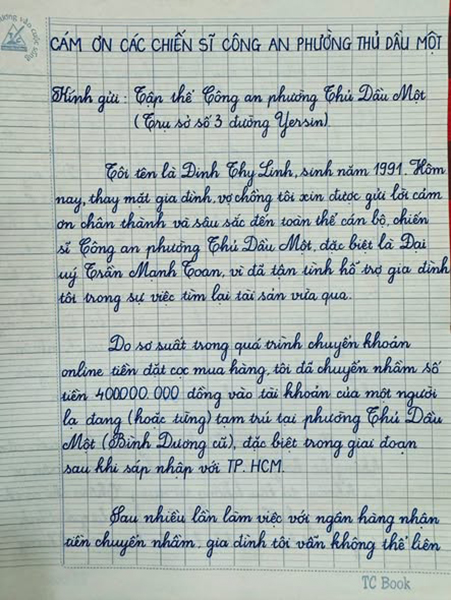 CÁM ƠN CÁC CHIẾN SĨ CÔNG AN PHƯỜNG THỦ DẦU MỘT
Kính gửi: Tập thể Công an phường Thủ Dầu Một
(Trụ sở số 3 đường Yersin)
Tôi tên là Đinh Thy Linh, sinh năm 1991. Hôm
nay, thay mặt gia đình, vợ chồng tôi xin được gửi lời cảm
ơn chân thành và sâu sắc đến toàn thể cán bộ, chiến
sĩ Công an phường Thủ Dầu Một, đặc biệt là Đại
uý Trần Mạnh Toan, vì đã tận tình hỗ trợ gia đình
tôi trong sự việc tìm lại tài sản vừa qua.
Do sơ suất trong quá trình chuyển khoản
online tiền đặt cọc mua hàng, tôi đã chuyển nhầm số
tiền 400.000.000 đồng vào tài khoản của một người
lạ đang (hoặc từng) tạm trú tại phường Thủ Dầu
Một (Bình Dương cũ), đặc biệt trong giai đoạn
sau khi sáp nhập với TP. HCM.
Sau nhiều lần làm việc với ngân hàng nhận
tiền chuyển nhầm, gia đình tôi vẫn không thể liên
TC Book